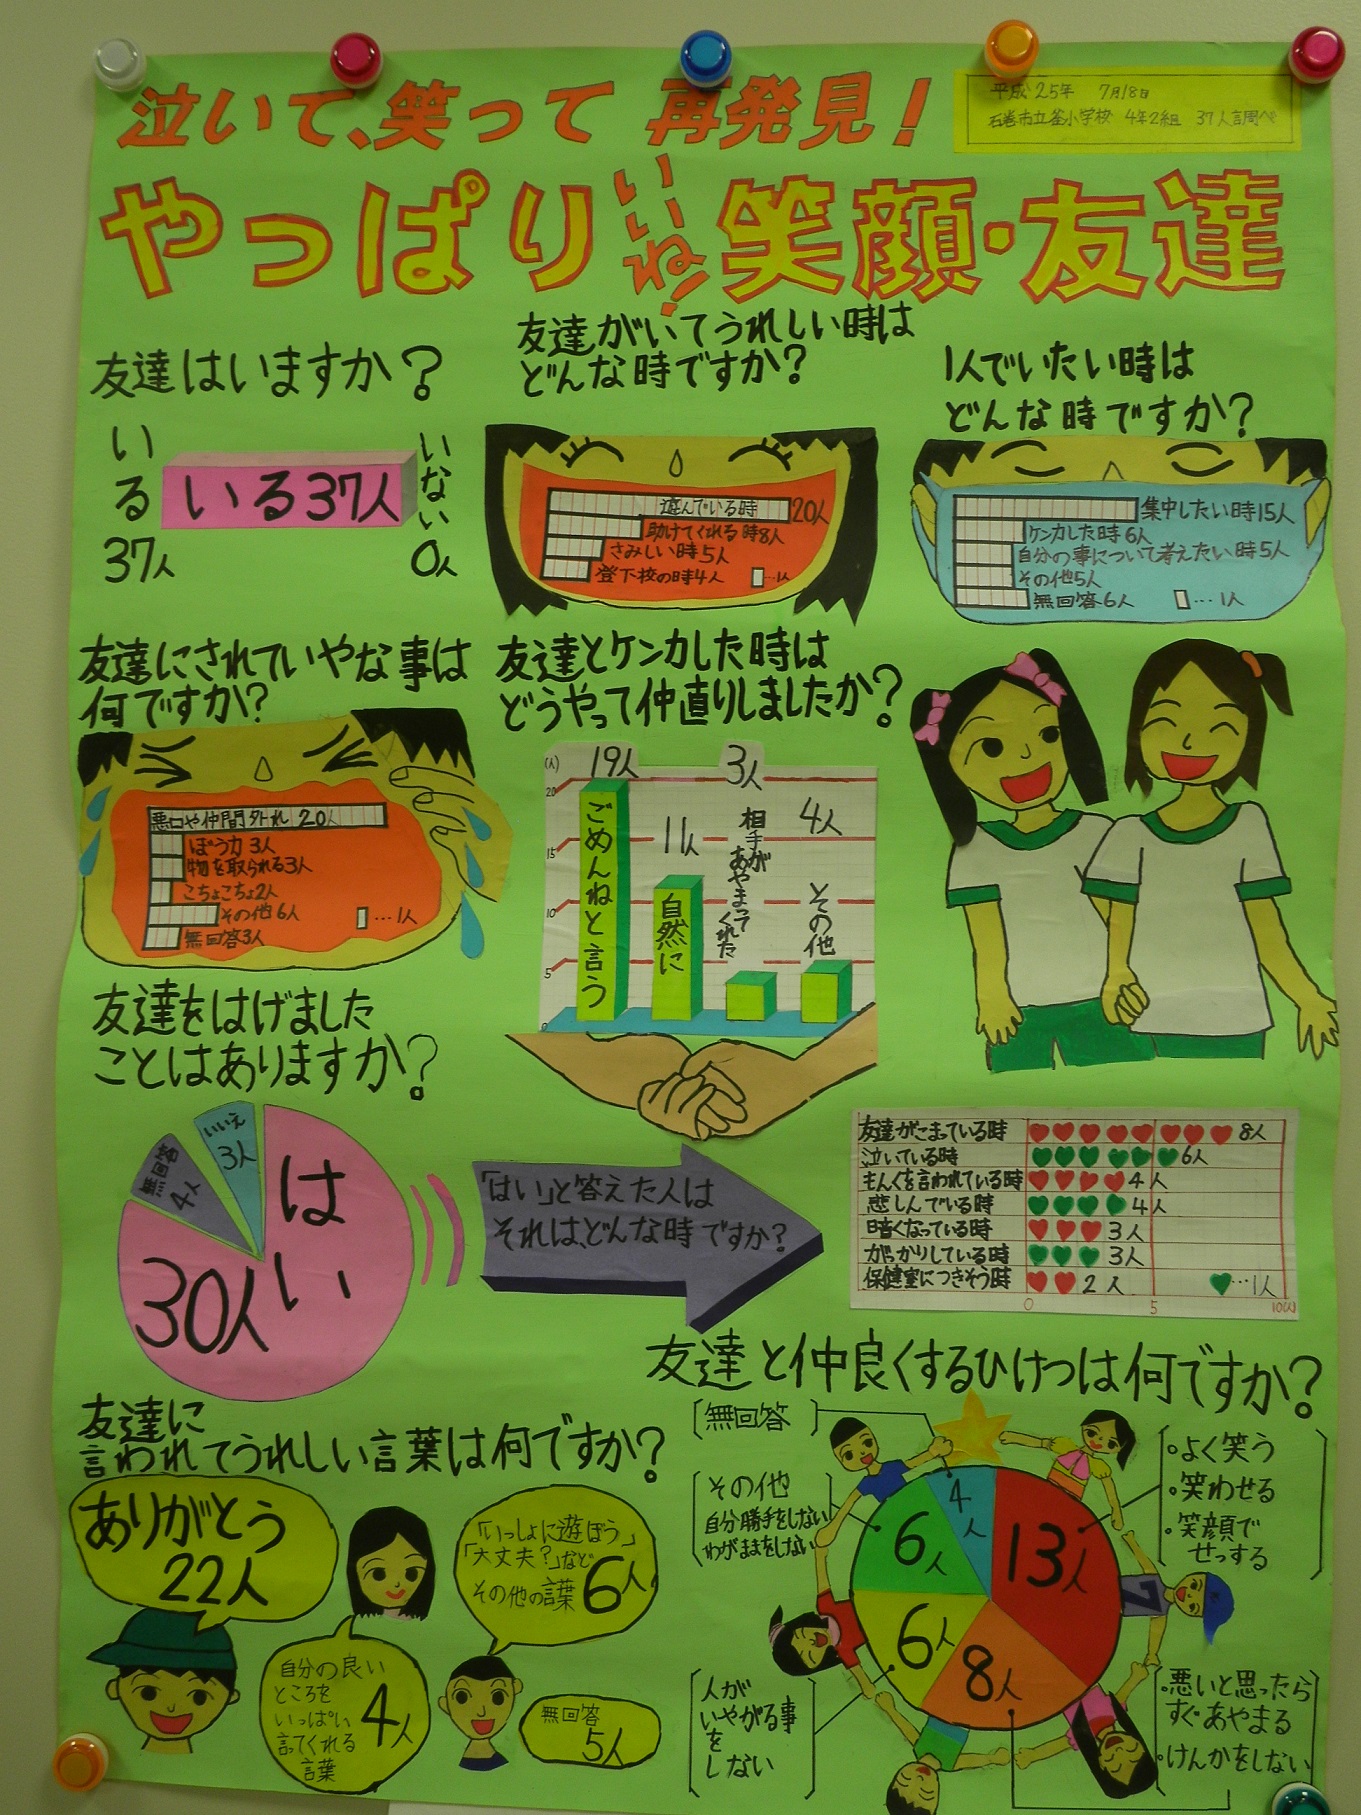 泣いて、笑って 再発見!
平成25年 7月18日
石巻市立釜小学校 4年2組 37人調べ
やっぱりいいね!笑顔・友達
友達はいますか?
いる
37人
いる37人
いない
0人
友達がいてうれしい時は
どんな時ですか?
遊んでいる時 20人
助けてくれる時8人
さみしい時5人
登下校の時4人
…1人
1人でいたい時は
どんな時ですか?
集中したい時15人
ケンカした時6人
自分の事について考えたい時5人
その他5人
無回答6人
…1人
友達にされていやな事は
何ですか?
悪口や仲間外れ 20人
ぼう力 3人
物を取られる3人
こちょこちょ2人
その他 6人
…1人
無回答3人
友達とケンカした時は
どうやって仲直りしましたか?
(人)
20
15
10
5
0
19人
ごめんねと言う
11人
自然に
3人
相手があやまってくれた
4人
その他
友達をはげました
ことはありますか?
いいえ
3人
無回答
4人
はい
30人
「はい」と答えた人は
それは、どんな時ですか?
友達がこまっている時 8人
泣いている時 6人
もんくを言われている時 4人
悲しんでいる時 4人
暗くなっている時 3人
がっかりしている時 3人
保健室につきそう時 2人
…1人
0 5 10(人)
友達に
言われてうれしい言葉は何ですか?
ありがとう
22人
「いっしょに遊ぼう」
「大丈夫?」など
その他の言葉 6人
自分の良い
ところを
いっぱい
言ってくれる
言葉
4人
無回答
5人
友達と仲良くするひけつは何ですか?
無回答
4人
その他
自分勝手をしない
わがままをしない
6人
人が
いやがる事
を
しない
6人
・よく笑う
・笑わせる
・笑顔で
せっする
13人
・悪いと思ったら
すぐあやまる
・けんかをしない
8人